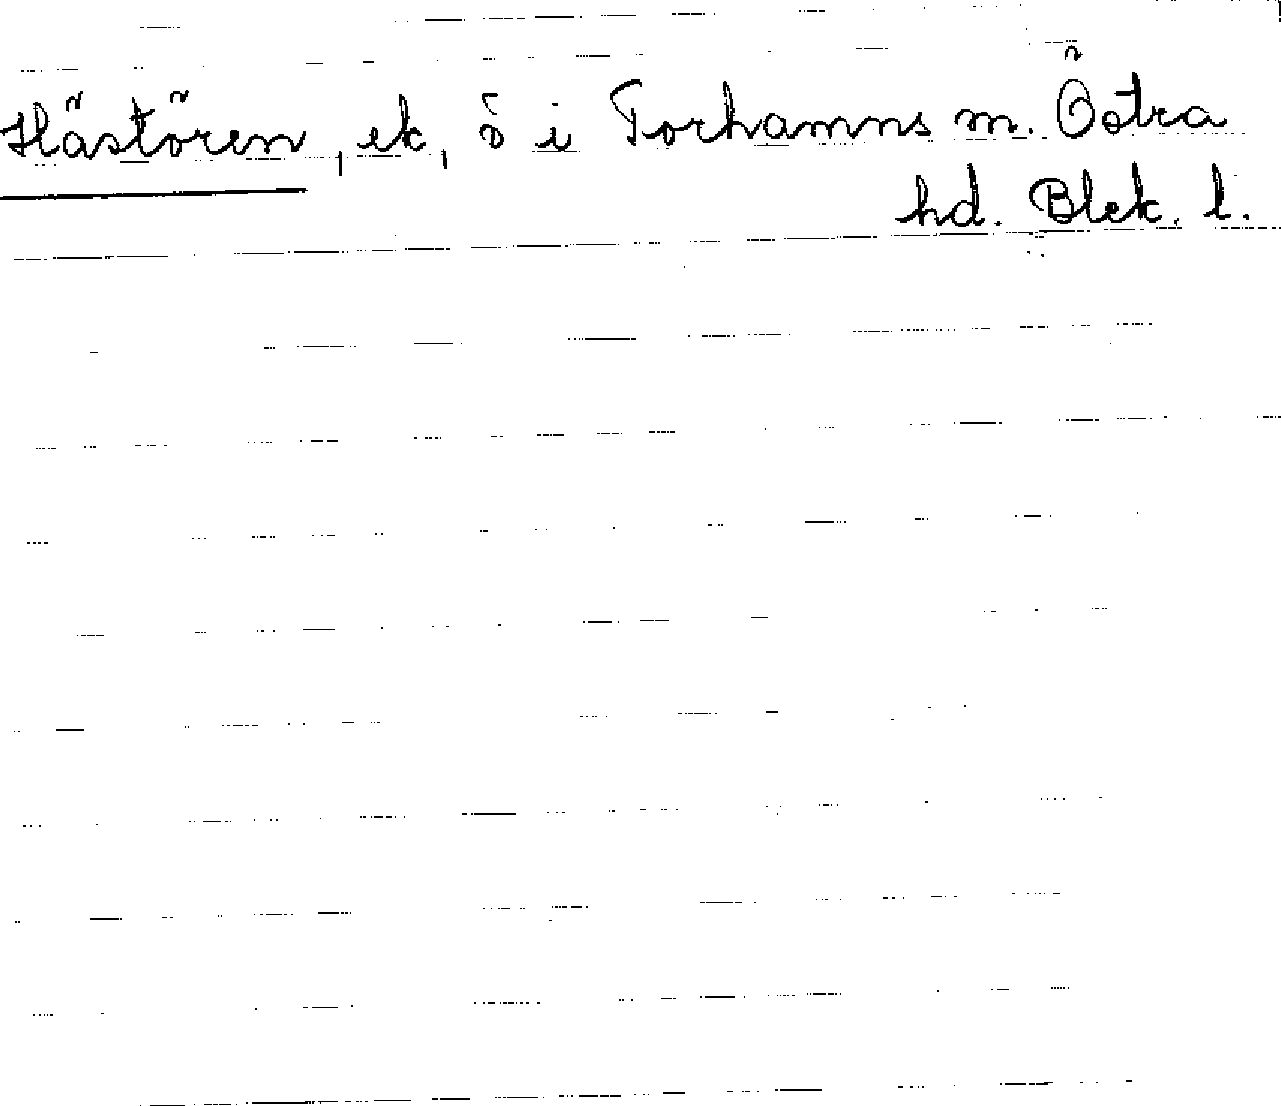 Hästören, ek, ö i Torhamns m. Östra
hd. Blek. l.